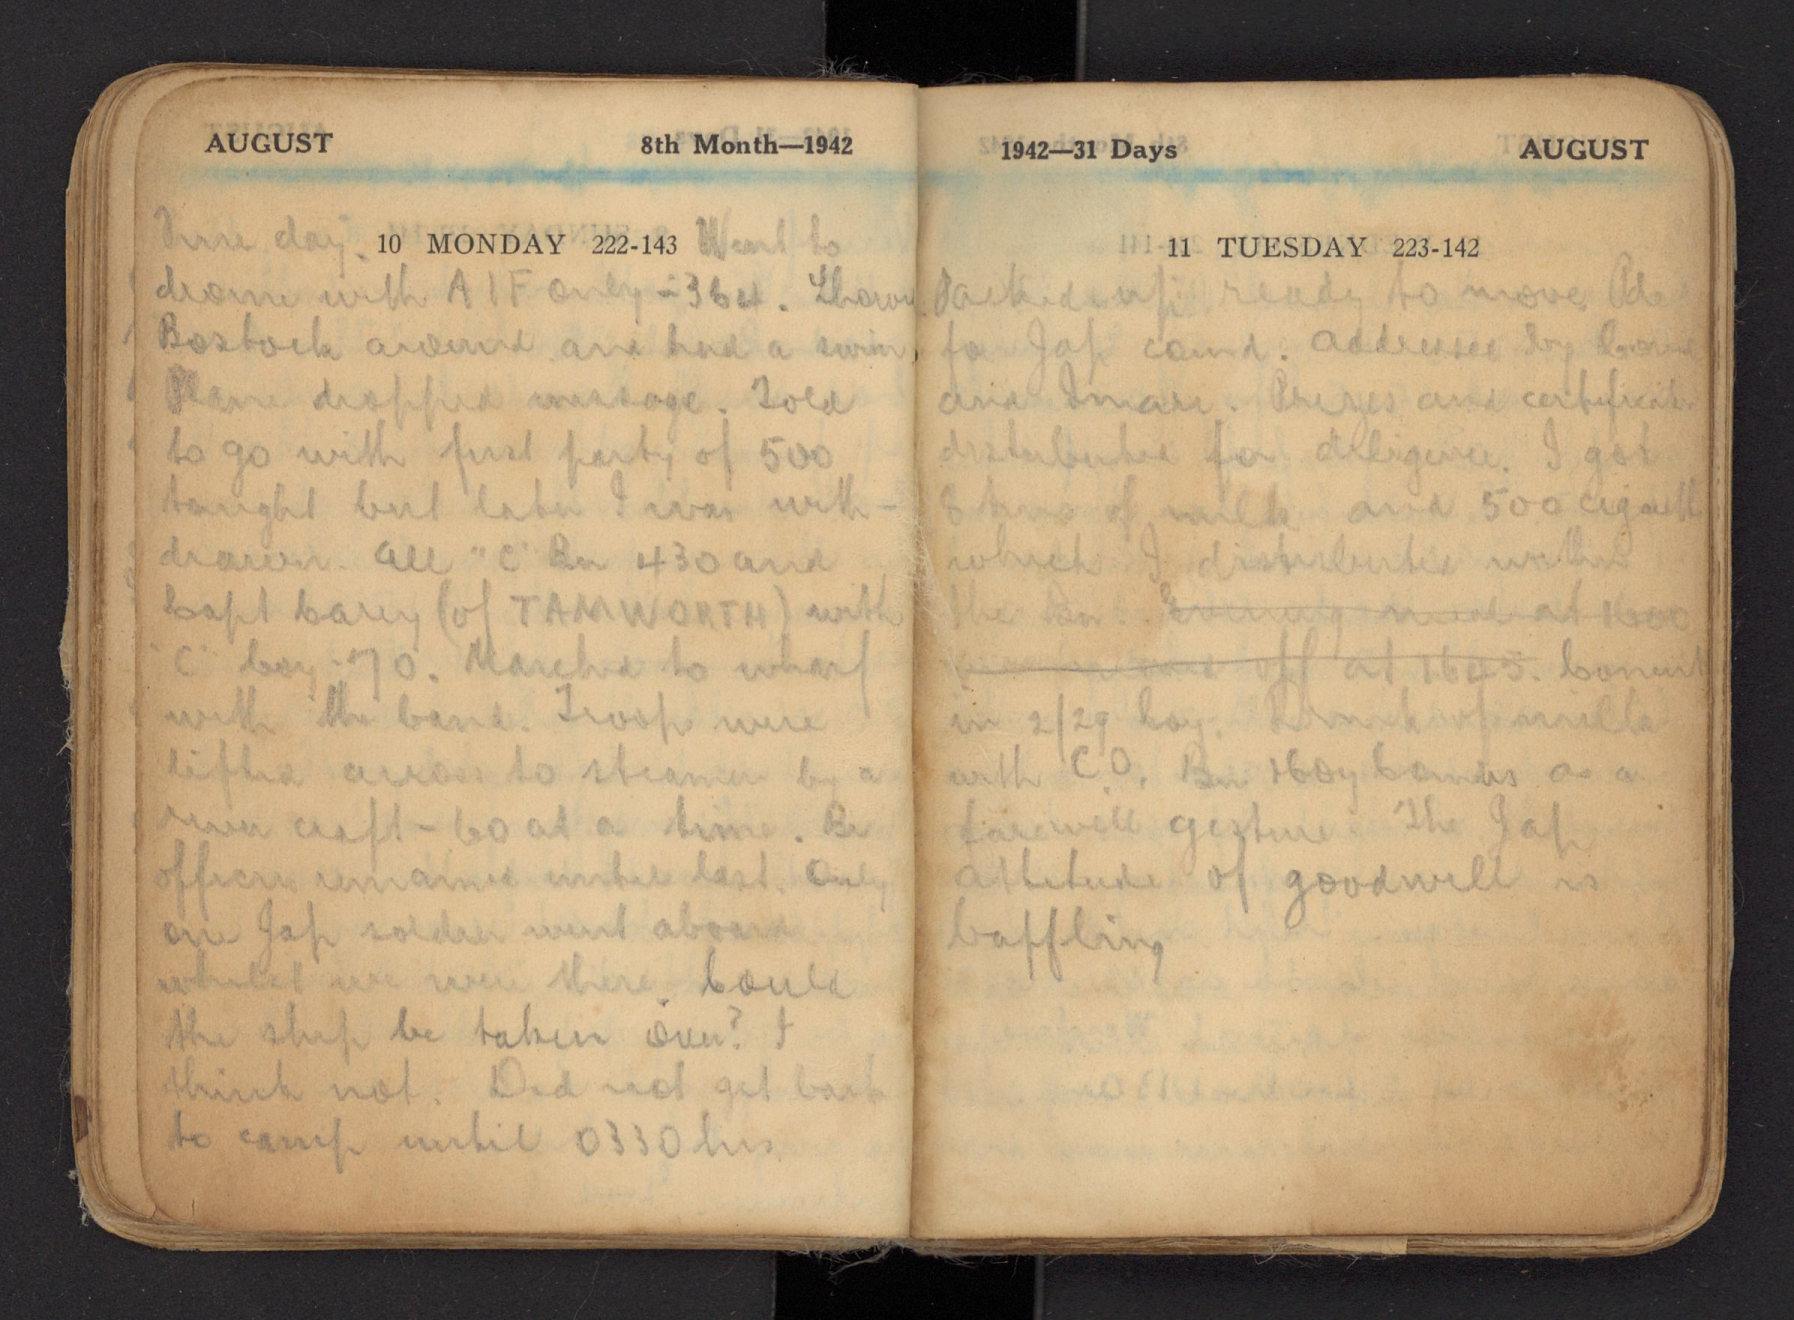 AUGUST 8th Month—1942
Fine day. 10 MONDAY 222-143 Went to
drome with AIF only - 364. Shown
Bostock around and had a swim.
Plane dropped message. Told
to go with first party of 500
tonight but later I was with-
drawn. All "C" Bn 430 and
Capt Carey (of TAMWORTH) with
"C" Coy - 70. Marched to wharf
with the band. Troops were
lifted across to steamer by a
river craft - 60 at a time. Bn
officers remained until last. Only
one Jap soldier went aboard
whilst we were there. Could
the ship be taken over? I
think not. Did not get back
to camp until 0330 hrs
1942—31 Days AUGUST
11 TUESDAY 223-142
Packed up ready to move. Pde
for Jap comd. Addressed by
and . Prizes and certificates
distributed for diligence. I got
8 tins of milk and 500 cigarettes
which I distributed within
the Bn. Evening meal at 1600
and off at 1645. Concert
in 2/29 Coy. Drank of milk
with C.O. Bn as a
farewell gesture. The Jap
attitude of goodwill is
baffling